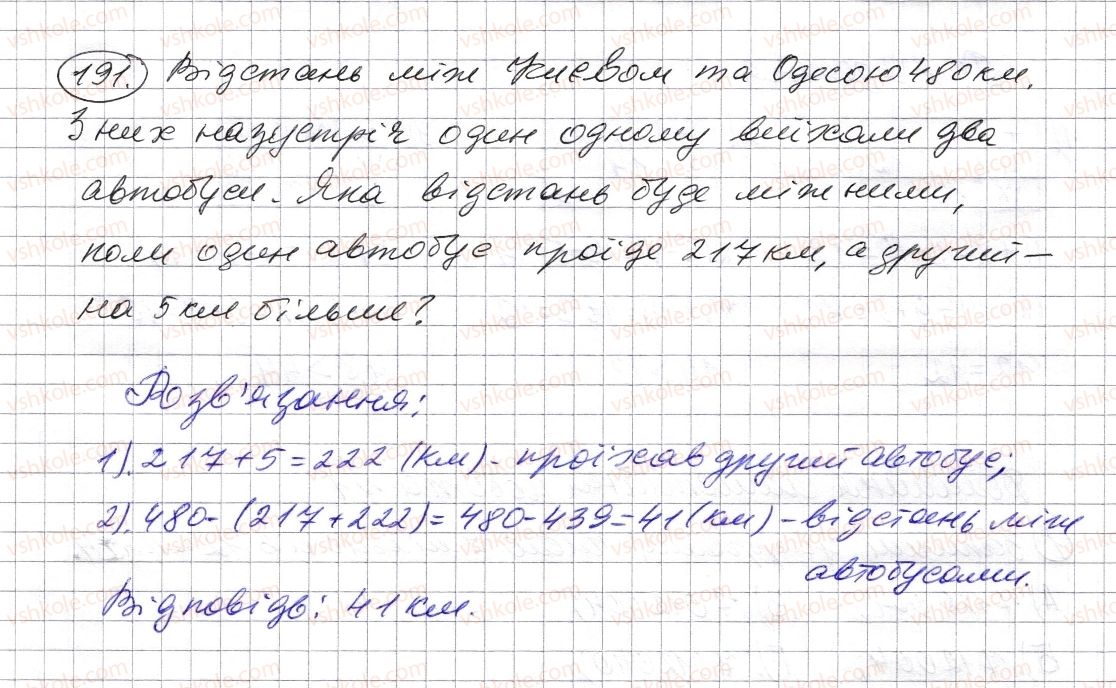 191. Відстань між Києвом та Одесою 480 км.
З них назустріч один одному виїхали два
автобуси. Яка відстань буде між ними,
коли один автобус проїде 217 км, а другий –
на 5 км більше?
Розв'язання:
1). 217 + 5 = 222 (км) - проїхав другий автобус;
2). 480 - (217 + 222) = 480 - 439 = 41 (км) – відстань між
автобусами.
Відповідь: 41 км.